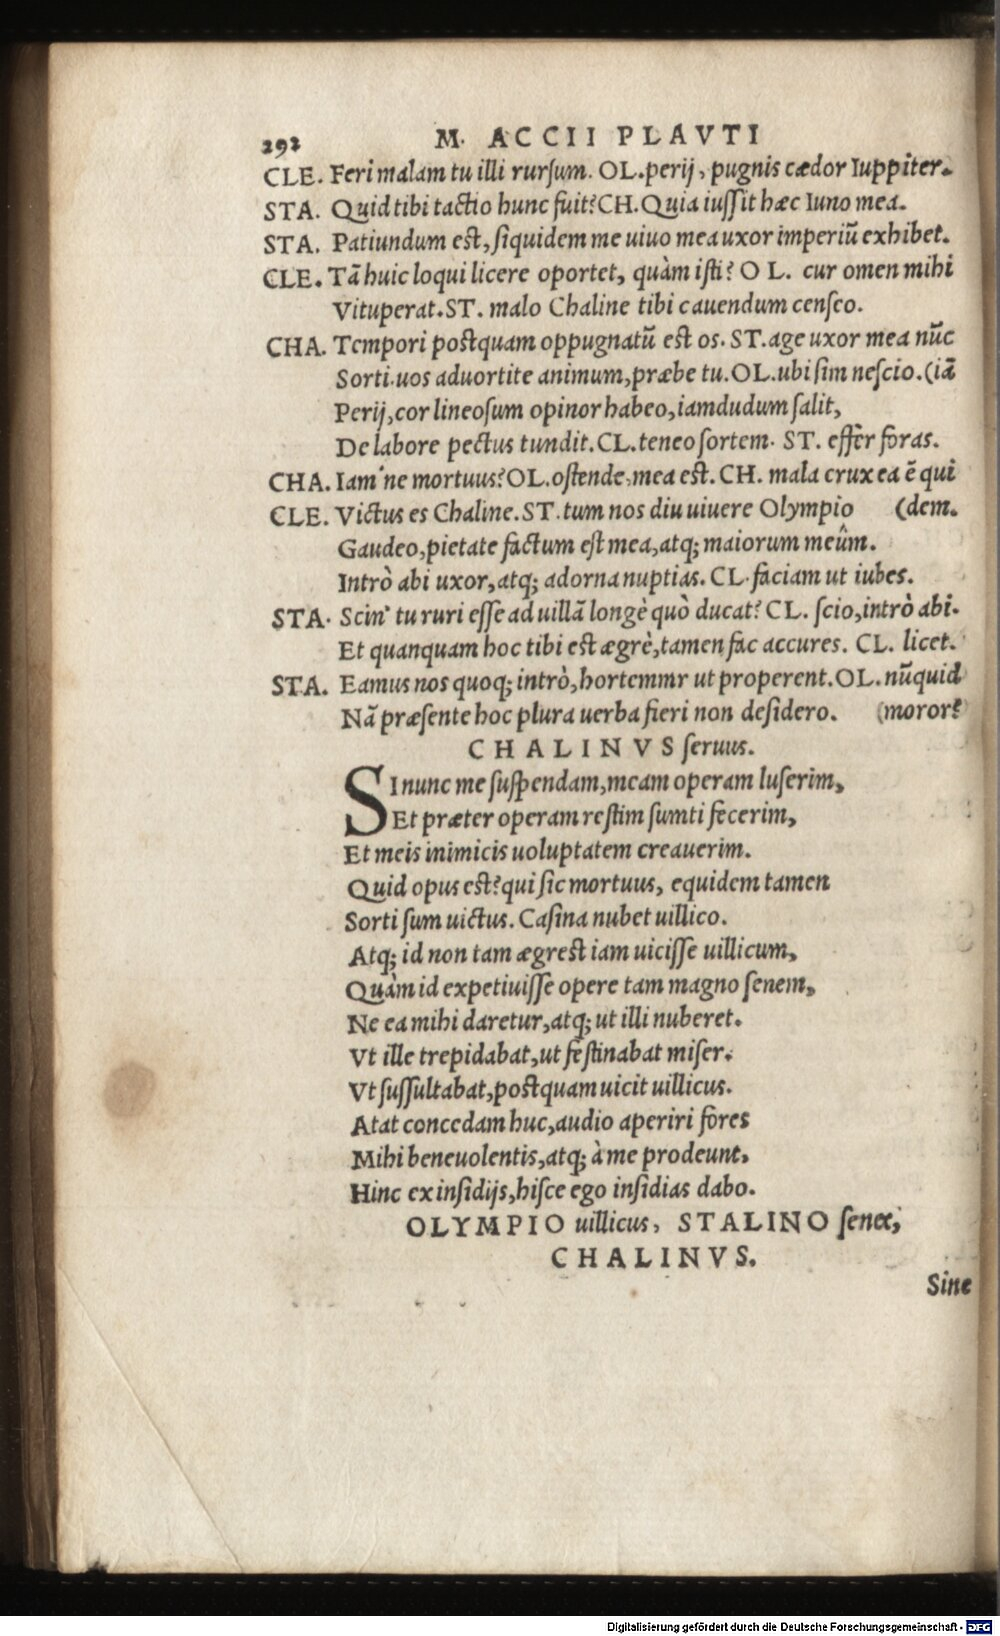 292 M. ACCII PLAVTI
CLE. Feri malam tu illi rursum. OL. perij, pugnis cædor Iuppiter.
STA. Quid tibi tactio hunc fuit? CH. Quia iussit hæc Iuno mea.
STA. Patiundum est, siquidem me uiuo mea uxor imperiū exhibet.
CLE. Tā huic loqui licere oportet, quàm isti? OL. cur omen mihi
Vituperat. ST. malo Chaline tibi cauendum censeo.
CHA. Tempori postquam oppugnatū est os. ST. age uxor mea nūc
Sorti. uos aduortite animum, præbe tu. OL. ubi sim nescio. (iā
Perij, cor lineosum opinor habeo, iamdudum salit,
De labore pectus tundit. CL. teneo sortem. ST. effèr foras.
CHA. Iam'ne mortuus? OL. ostende, mea est. CH. mala crux ea ē qui
CLE. Victus es Chaline. ST. tum nos diu uiuere Olympio (dem.
Gaudeo, pietate factum est mea, atq; maiorum meûm.
Intrò abi uxor, atq; adorna nuptias. CL. faciam ut iubes.
STA. Scin' tu ruri esse ad uillā longè quò ducat? CL. scio, intrò abi.
Et quanquam hoc tibi est ægrè, tamen fac accures. CL. licet.
STA. Eamus nos quoq; intrò, hortemmr ut properent. OL. nūquid
Nā præsente hoc plura uerba fieri non desidero. (moror?
CHALINVS seruus.
SI nunc me suspendam, meam operam luserim,
Et præter operam restim sumti fecerim,
Et meis inimicis uoluptatem creauerim.
Quid opus est? qui sic mortuus, equidem tamen
Sorti sum uictus. Casina nubet uillico.
Atq; id non tam ægrest iam uicisse uillicum,
Quàm id expetiuisse opere tam magno senem,
Ne ea mihi daretur, atq; ut illi nuberet.
Vt ille trepidabat, ut festinabat miser.
Vt sussultabat, postquam uicit uillicus.
Atat concedam huc, audio aperiri fores
Mihi beneuolentis, atq; à me prodeunt,
Hinc ex insidijs, hisce ego insidias dabo.
OLYMPIO uillicus, STALINO senex,
CHALINVS.
Sine
Digitalisierung gefördert durch die Deutsche Forschungsgemeinschaft - DFG